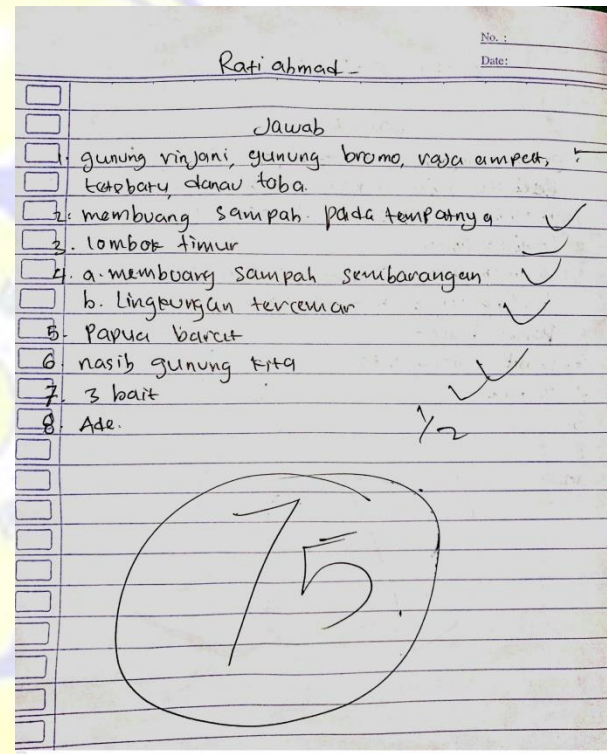 No. :
Date:
Rati ahmad
Jawab
1. gunung rinjani, gunung bromo, raja ampat,
tetebatu, danau toba.
2. membuang sampah pada tempatnya
3. lombok timur
4. a. membuang sampah sembarangan
b. Lingkungan tercemar
5. Papua barat
6 nasib gunung kita
7. 3 bait
8. Ade.
1/2
75